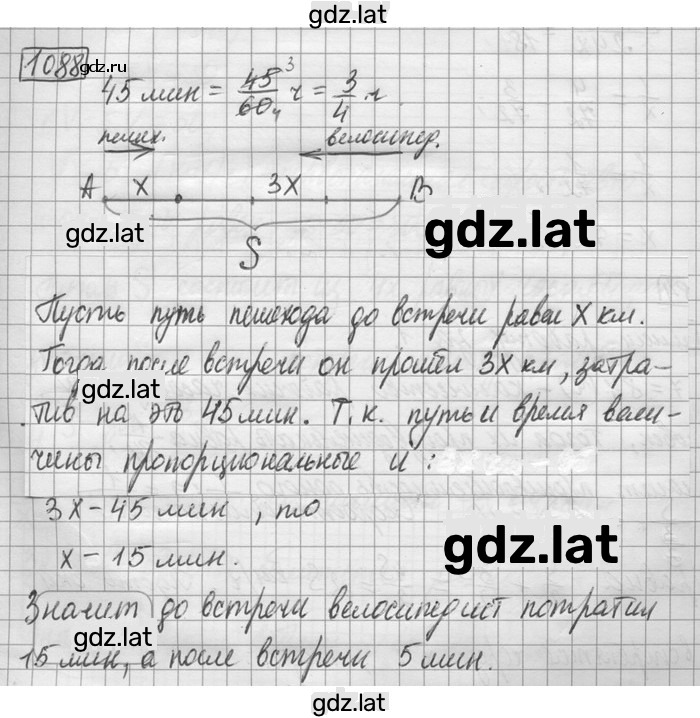 gdz.lat
1088
gdz.ru
45 мин = 45/60 ч = 3/4 ч
3
4
пешех.
велосипед.
A
x
3x
B
S
gdz.lat
gdz.lat
Пусть путь пешехода до встречи равен x км.
Тогда после встречи он прошёл 3x км, затра-
gdz.lat
тив на это 45 мин. Т.к. путь и время вели-
чины пропорциональные и :
3x – 45 мин, то
x – 15 мин.
gdz.lat
Значит до встречи велосипедист потратил
gdz.lat
15 мин, а после встречи 5 мин.
gdz.lat